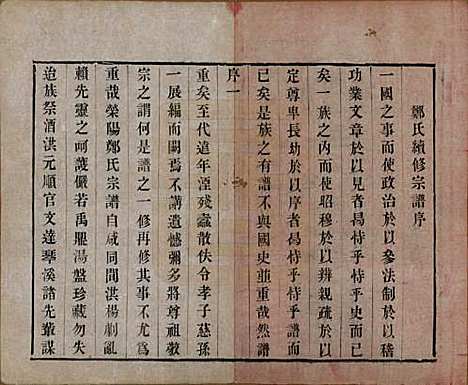 鄭氏續修宗譜序
一國之事而使政治於以參法制於以稽
功業文章於以見者曷恃乎恃乎史而已
矣一族之內而使昭穆於以辨親疏於以
定尊卑長幼於以序者曷恃乎恃乎譜而
已矣是族之有譜不與國史並重哉然譜
序一
重矣至代遠年湮殘蠹散佚令孝子慈孫
一展編而闕焉不講遺憾彌多將尊祖敬
宗之謂何是譜之一修再修其事不尤為
重哉滎陽鄭氏宗譜自咸同間洪楊劇亂
賴先靈之呵護儼若禹鼎湯盤珍藏勿失
迨族祭酒洪元順官文達琴溪諸先輩謀